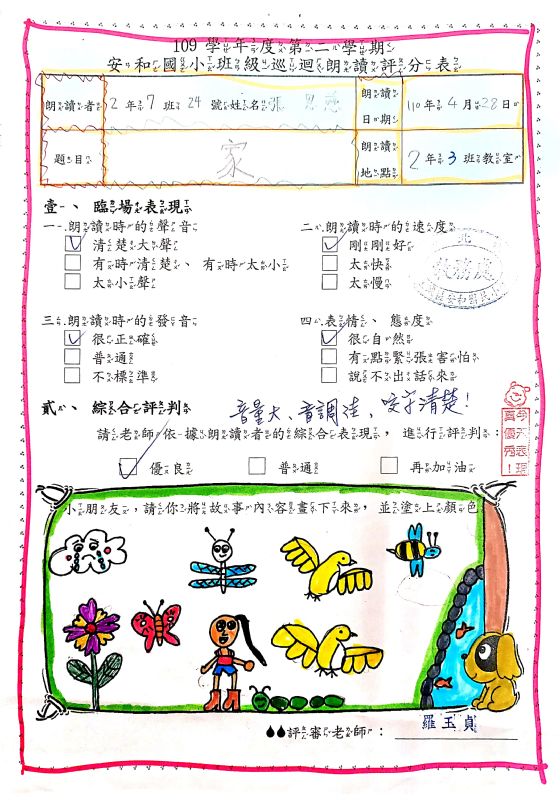 109 學年度第二學期
安和國小班級巡迴朗讀評分表
朗讀者 2 年 7 班 24 號姓名張
朗讀日期 110年 4 月 28 日
題目 家
朗讀地點 2 年 3 班教室
壹、 臨場表現
一.朗讀時的聲音
二.朗讀時的速度
清楚大聲
剛剛好
有時清楚、有時太小
太快
太小聲
太慢
三.朗讀時的發音
四.表情、態度
很正確
很自然
普通
有點緊張害怕
不標準
說不出話來
貳、 綜合評判
音量大、音調佳,咬字清楚!
請老師依據朗讀者的綜合表現,進行評判:
優良 普通 再加油
小朋友,請你將故事內容畫下來,並塗上顏色。
評審老師: 羅玉貞